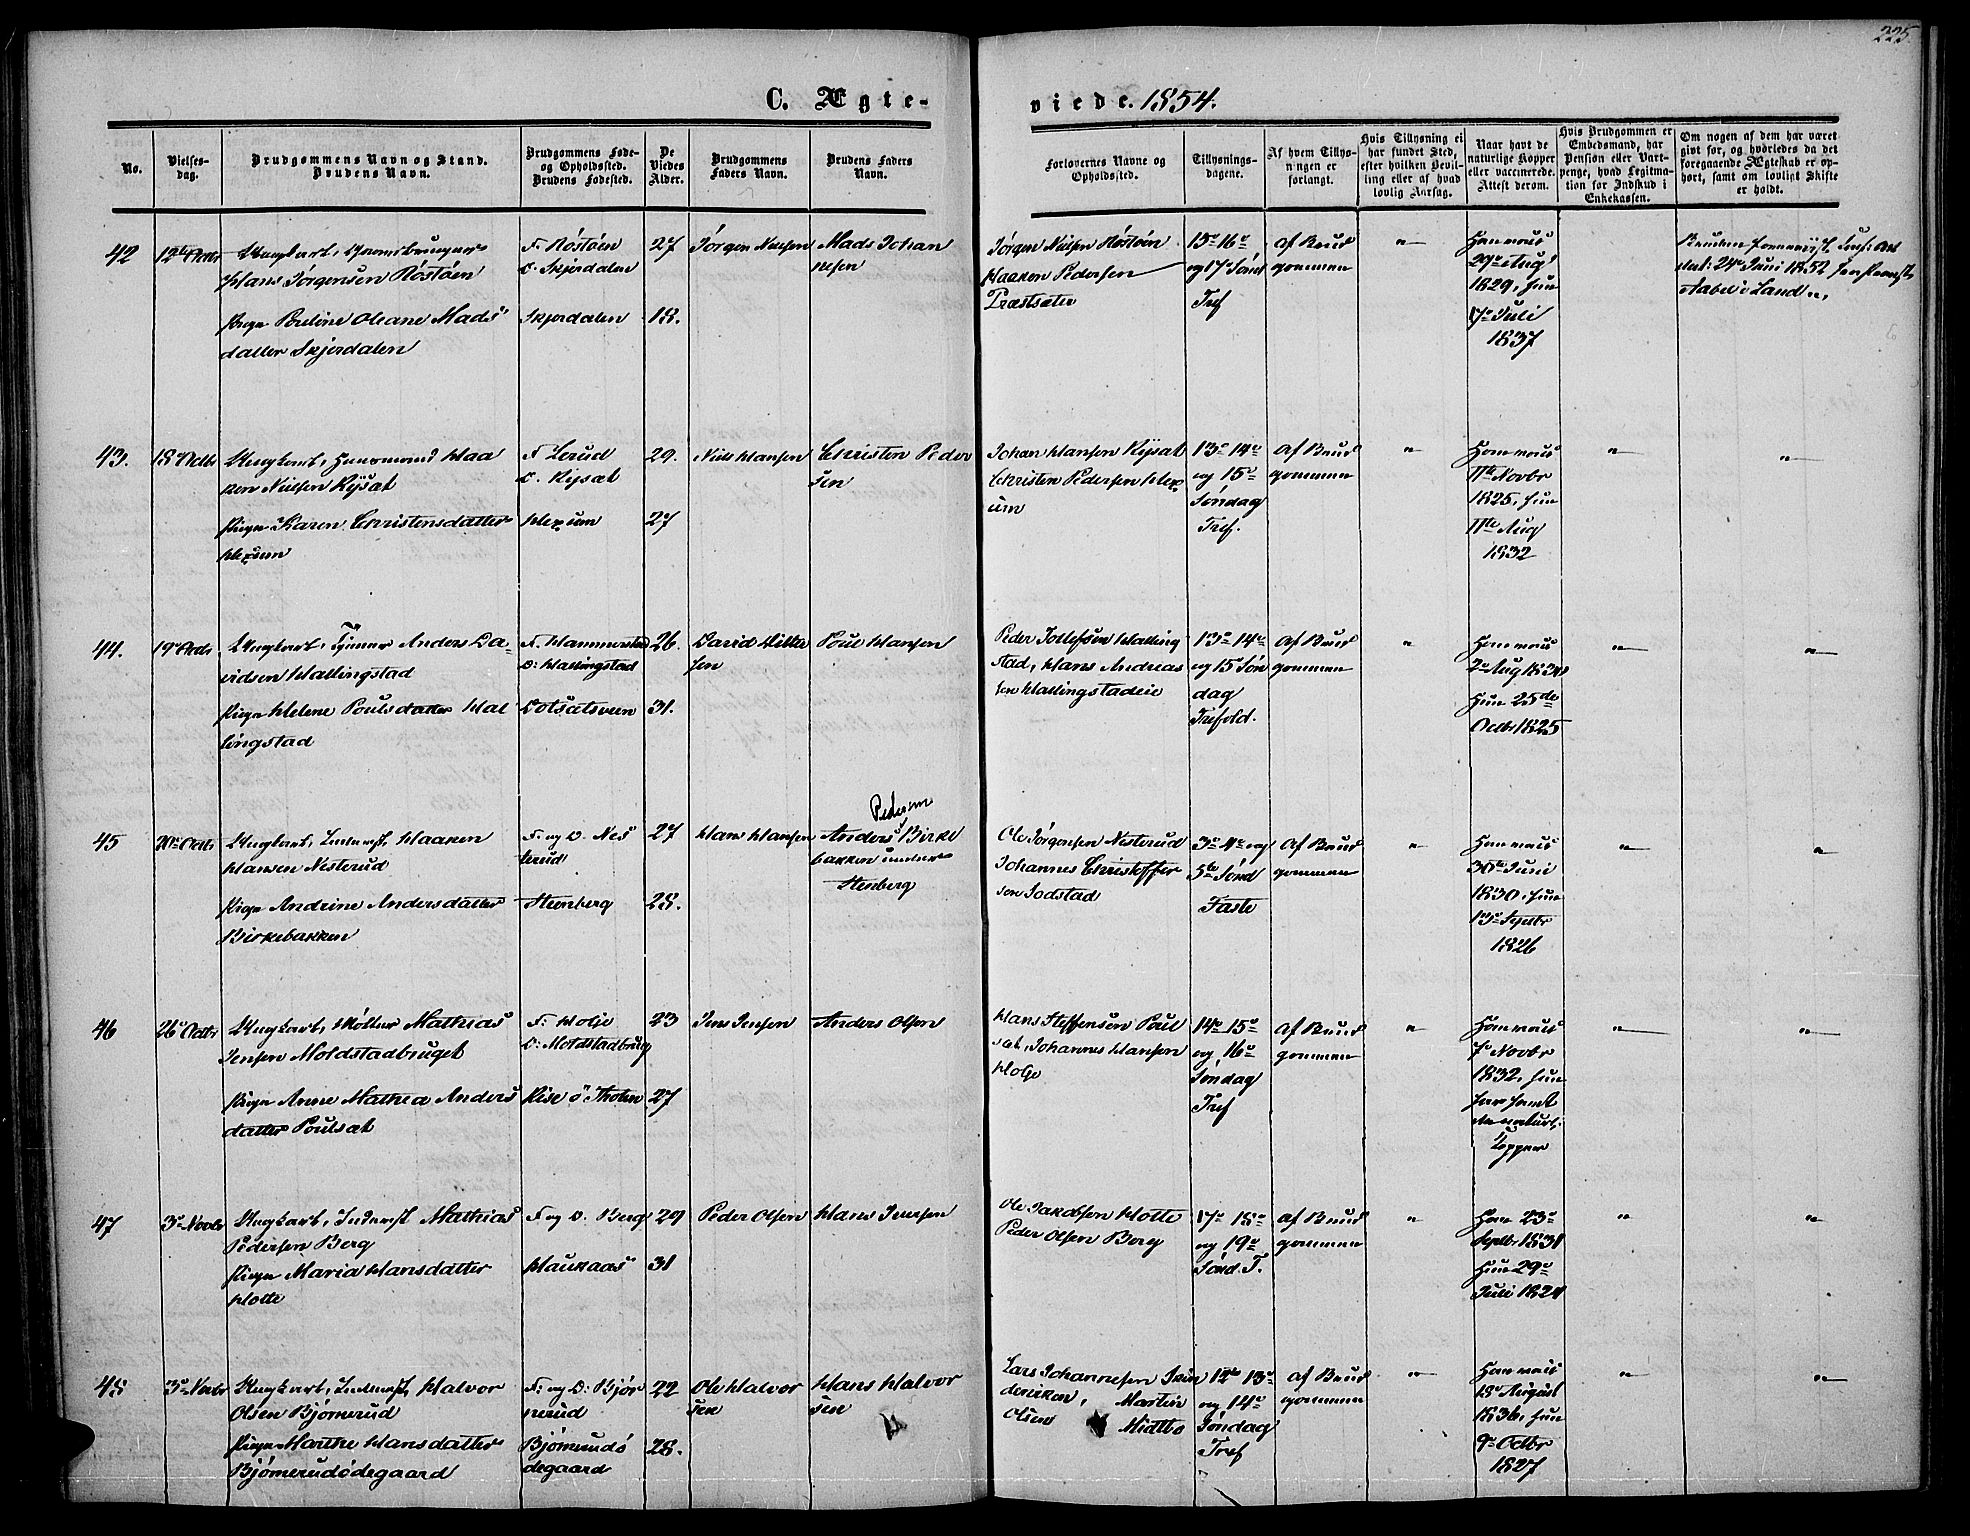 225.
C. Ægte-
viede. 1854.
No.
Vielses-
dag.
Brudgommens Navn og Stand.
Brudens Navn.
Brudgommens Føde-
og Opholdssted.
Brudens Fødested.
De
Viedes
Alder.
Brudgommens
Faders Navn.
Brudens Faders
Navn.
Forlovernes Navne og
Opholdssted.
Tillysnings-
dagene.
Af hvem Tillys-
ningen er
forlangt.
Hvis Tillysning ei
har fundet Sted,
efter hvilken Bevil-
ling eller af hvad
lovlig Aarsag.
Naar havt de
naturlige Kopper
eller vaccinerede.
Attest derom.
Hvis Brudgommen er
Embedsmand, har
Pension eller Vart-
penge, hvad Legitima-
tion for Indskud i
Enkekassen.
Om nogen af dem har været
gift før, og hvorledes da det
foregaaende Ægteskab er op-
hørt, samt om lovligt Skifte
er holdt.
42
12te Octbr
Ungkarl, Gaardbruger
Hans Jørgensen Röstöen
Pigen Pauline Oleane Mads
datter Skjerdalen
F. Röstöen
O. Skjerdalen
Skjerdalen
27
18.
Jørgen Nielsen
Mads Johan
nesen
Jørgen Nielsen Röstöen
Haaken Pedersen
Præstsæter
15de 16de
og 17de Sönd
Tref
af Brud
gommen
"
Ham vacc
29de Aug
1829, hun
17de Juli
1837
43.
18de Octbr
Ungkarl, Huusmand Haa
ken Nielsen Rysæt
Pigen Karen Christensdatter
Hexum
F. Lerud
O. Rysæt
Hexum
29.
27
Niels Hansen
Christen Peder
sen
Johan Hansen Rysæt
Christen Pedersen Hex
um
13de 14de
og 15de
Söndag
Tref.
af Brud
gommen
"
Ham vacc
11te Novbr
1825, hun
11te Aug
1832
"
"
44.
19de Octbr
Ungkarl, Tjener Anders Da-
vidsen Hallingstad
Pigen Helene Poulsdatter Hal
lingstad
F. Hammerstad
O. Hallingstad
Dotsætsveen
26.
31.
David Mikkel
sen
Poul Hansen
Peder Tollefsen Halling
stad, Hans Andreas
sen Hallingstadeie
13de 14de
og 15 Sön
dag
Trefold.
af Brud
gommen
"
Ham vacc
2de Aug 1830
Hun 25de
Octbr 1825
"
"
45
20de Octbr
Ungkarl, Inderst, Haaken
Hansen Nesterud
Pigen Andrine Andersdatter
Birkebakken
F. og O. Nes
terud
Stenberg
27
28.
Hans Hansen
Pedersen
Anders Birke
bakken under
Stenberg
Ole Jørgensen Nesterud
Johannes Christoffer
sen Sodstad
3de 4de og
5te Sönd
Faste
af Brud
gommen
"
Ham vacc
30te Juni
1830, hun
13de Septbr
1826
"
"
46
26de Octbr
Ungkarl, Möller Mathias
Jensen Moldstadbruget
Pigen Anne Mathea Anders
datter Poulsæt
F: Holje
O: Moldstadbrug
Rise Ö Thoten
23
27
Jens Jensen
Anders Olsen
Hans Steffensen Poul
sæt, Johannes Hansen
Holje
14de 15de
og 16de
Söndag
Tref
af Brud
gommen
"
Ham vacc
7de Novbr
1832, hun
har havt
de naturl:
Kopper
"
"
47
3de Novbr
Ungkarl, Inderst Mathias
Pedersen Berg
Pigen Maria Hansdatter
Hotte
F. og O. Berg
Haukaas
29
31
Peder Olsen
Hans Iversen
Ole Jakobsen Hotte
Peder Olsen Berg
17de 18de
og 19de
Sönd. T.
af Brud
gommen
"
Ham 23de
Septbr 1831
Hun 29de
Juli 1824
"
"
48
3de Novbr
Ungkarl, Inderst, Halvor
Olsen Bjørnerud
Pigen Marthe Hansdatter
Bjørnerudødegaard
F. og O: Bjør
nerud
Bjørnerudø
degaard
22
28.
Ole Halvor
sen
Hans Halvor
sen
Lars Johannesen
Martin
Olsen Midtbö
12te 13de
og 14de
Söndag
Tref
af Brud
gommen
"
Ham vacc
18de August
1836, hun
9de Octbr
1827
"
"